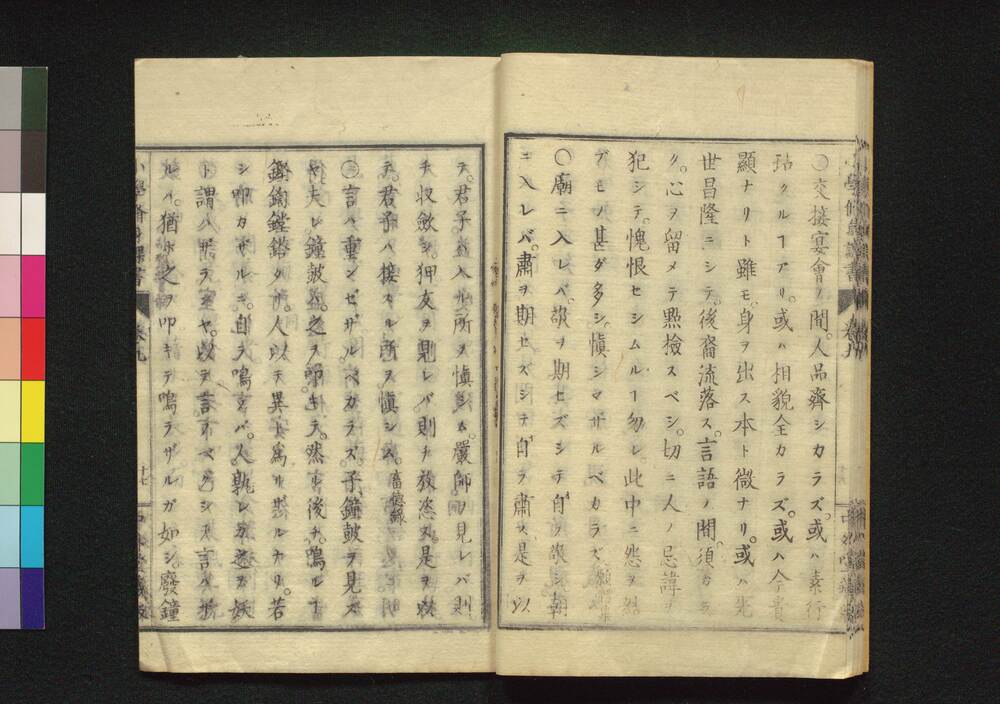 〇交接宴會ノ間。人品齊シカラズ。或ハ素行
玷クルヿアリ。或ハ相貌全カラズ。或ハ今貴
顯ナリト雖モ。身ヲ出ス本ト微ナリ。或ハ先
世昌隆ニシテ。後裔流落ス。言語ノ間。須ラ
ク。心ヲ留メテ點撿スベシ。切ニ人ノ忌諱ヲ
犯シテ。愧恨セシムルヿ勿レ。此中ニ怨ヲ
ブモノ甚ダ多シ。愼シマザルベカラズ。
〇廟ニ入レバ。敬ヲ期セズシテ自ラ敬シ。朝
ニ入レバ。肅ヲ期セズシテ自ラ肅ス。是ヲ以
テ。君子ハ入ル所ヲ愼シム。嚴師ヲ見レバ則
チ收斂シ。狎友ヲ見レバ則チ放恣ス。是ヲ以
テ。君子ハ接スル所ヲ愼シム。
〇言ハ重ンゼザルベカラズ。子鐘鼓ヲ見ズ
ヤ。夫レ鐘鼓ハ。之ヲ叩キテ。然ル後チ。鳴ル
鏗鍧鏜鎝タリ。人以テ異ト爲サルナリ。若
シ叩カザルニ。自ラ鳴ラバ。人孰レカ妖
ト謂ハザランヤ。以テ言フベクシテ言ハ
ルハ。猶ホ之ヲ叩キテ鳴ラザルガ如シ。廢鐘
小學修身課書 卷九
十七